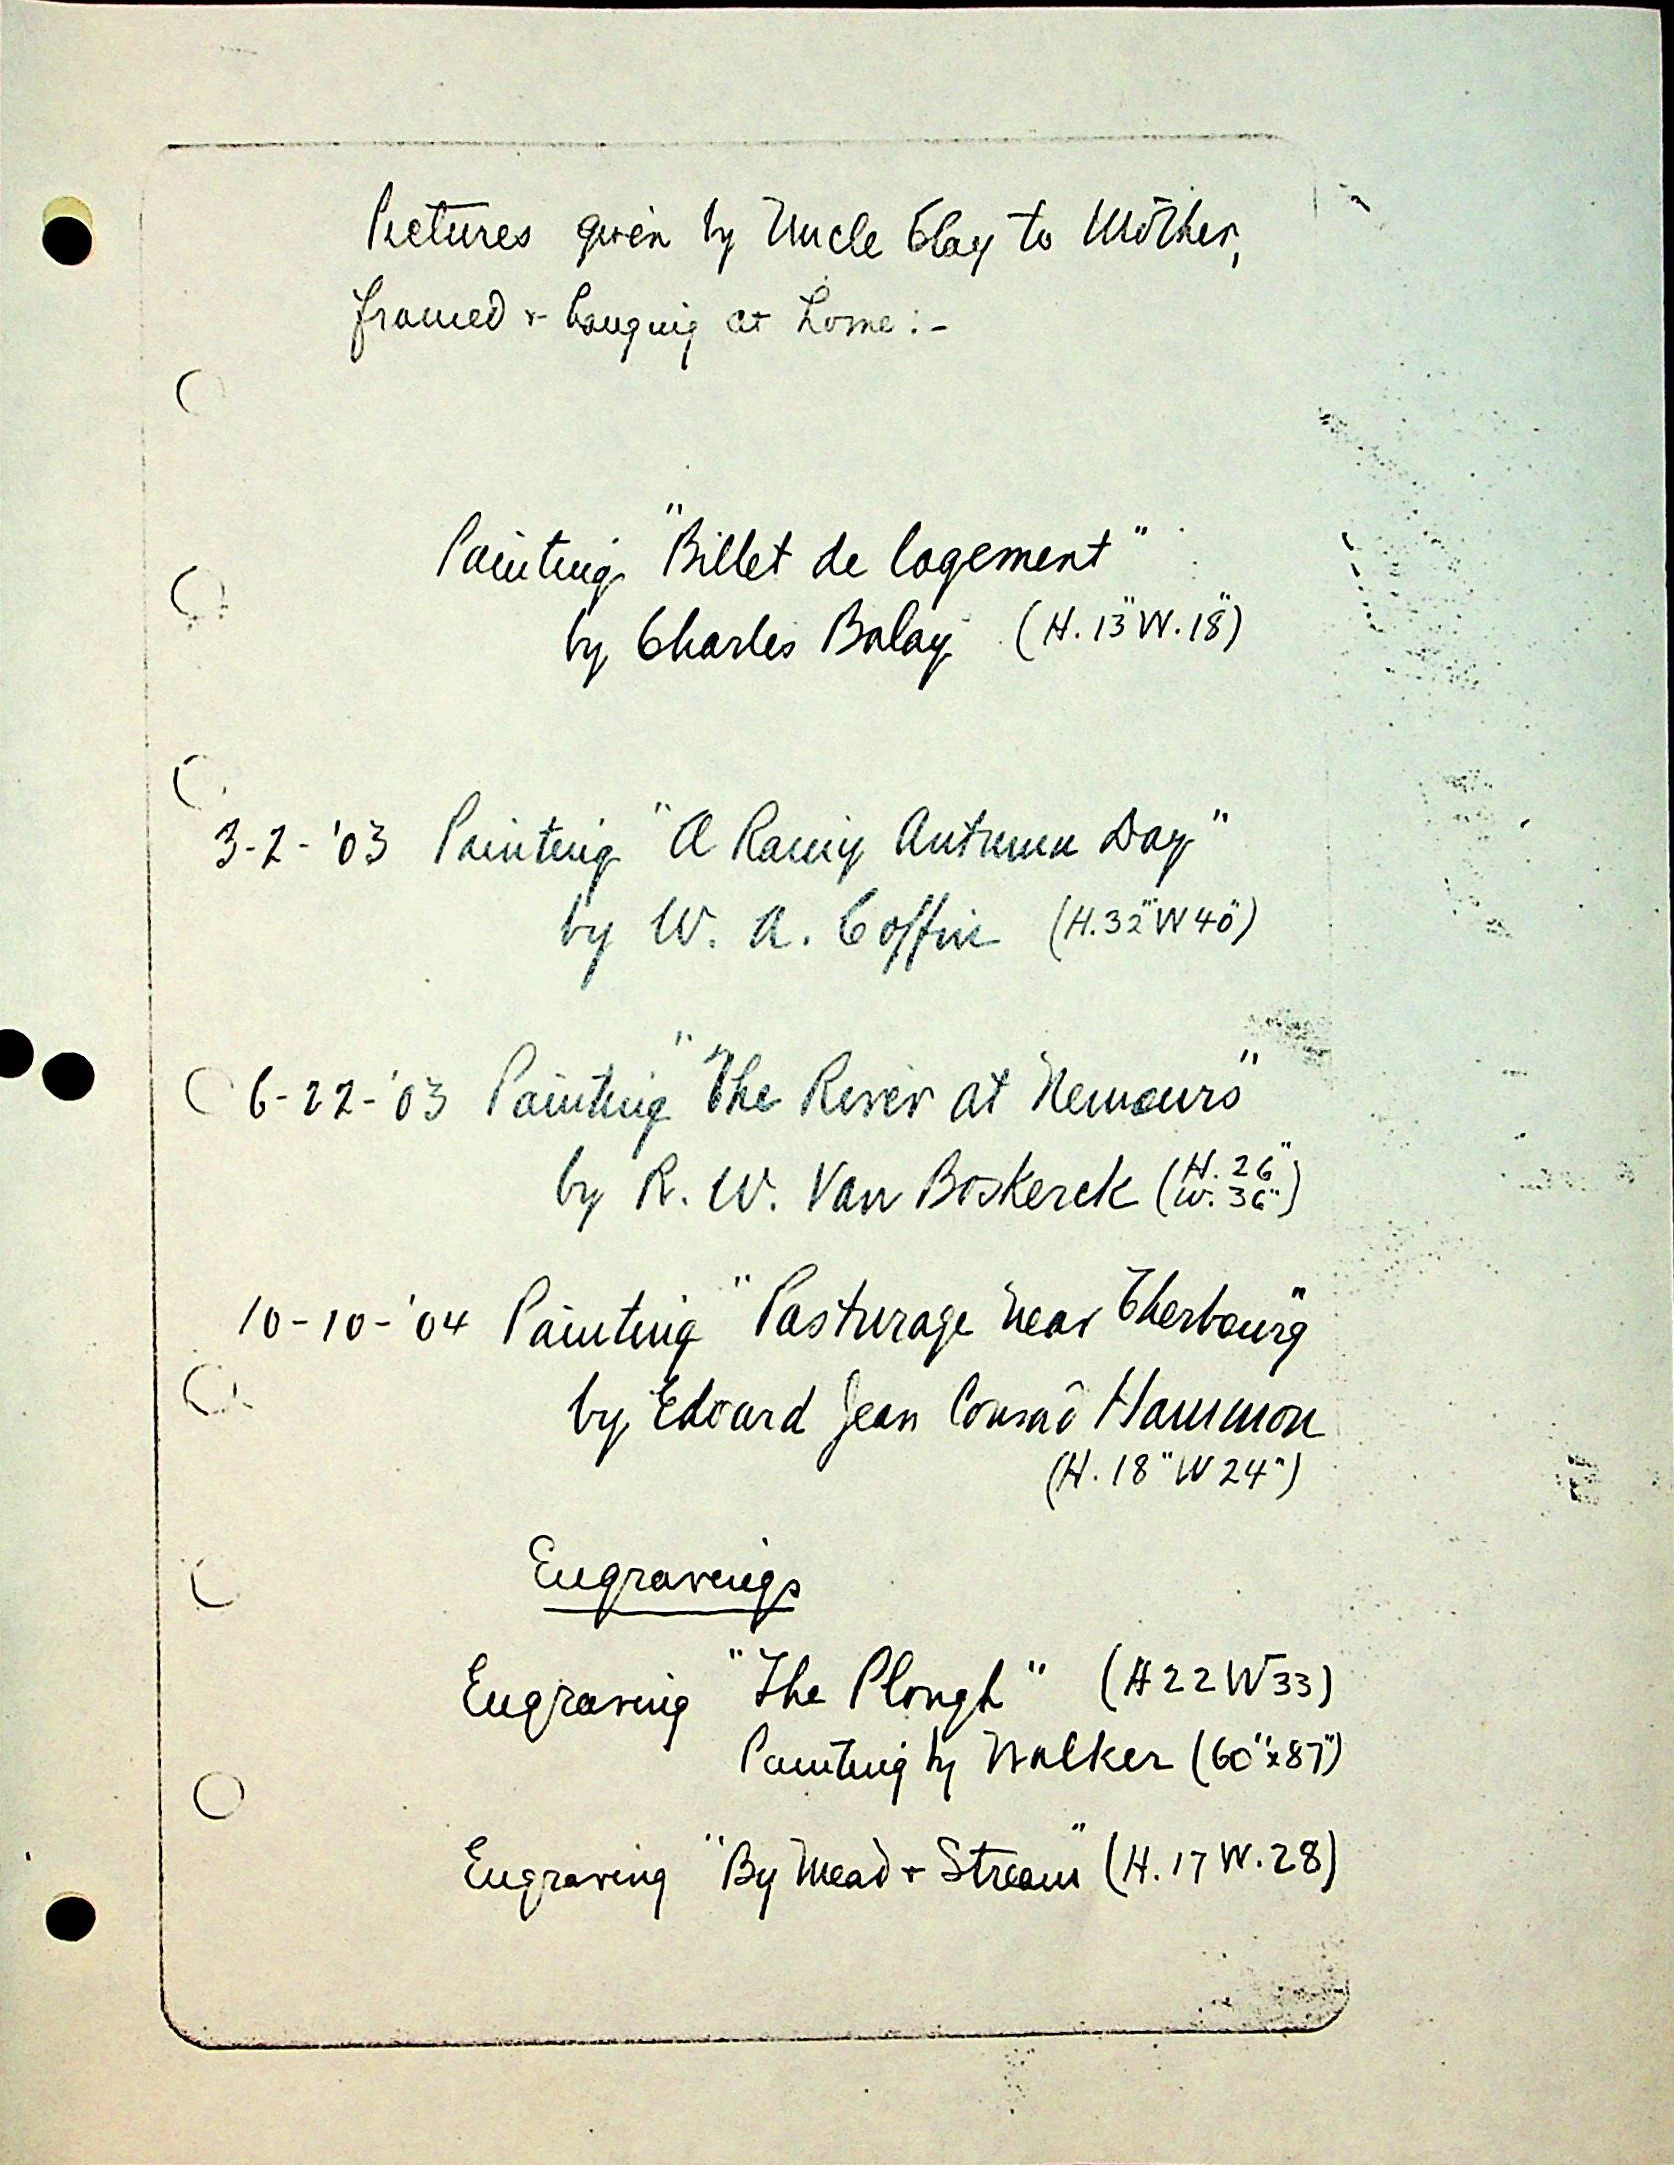 Pictures given by Uncle Clay to Mother,
framed & hanging at home:-
Painting "Billet de logement"
by Charles Balay (H. 13" W. 18")
3-2-'03 Painting "A Rainy Autumn Day"
by W. A. Coffin (H. 32" W 40")
6-22-'03 Painting "The River at Nemours"
by R. W. Van Boskerck (H. 26" W. 36")
10-10-'04 Painting "Pasturage near Cherbourg"
by Edouard Jean Conrad Hammon
(H. 18" W 24")
Engravings
Engraving "The Plough" (H 22 W 33)
Painting by Walker (60" x 87")
Engraving "By Mead & Stream" (H. 17 W. 28)